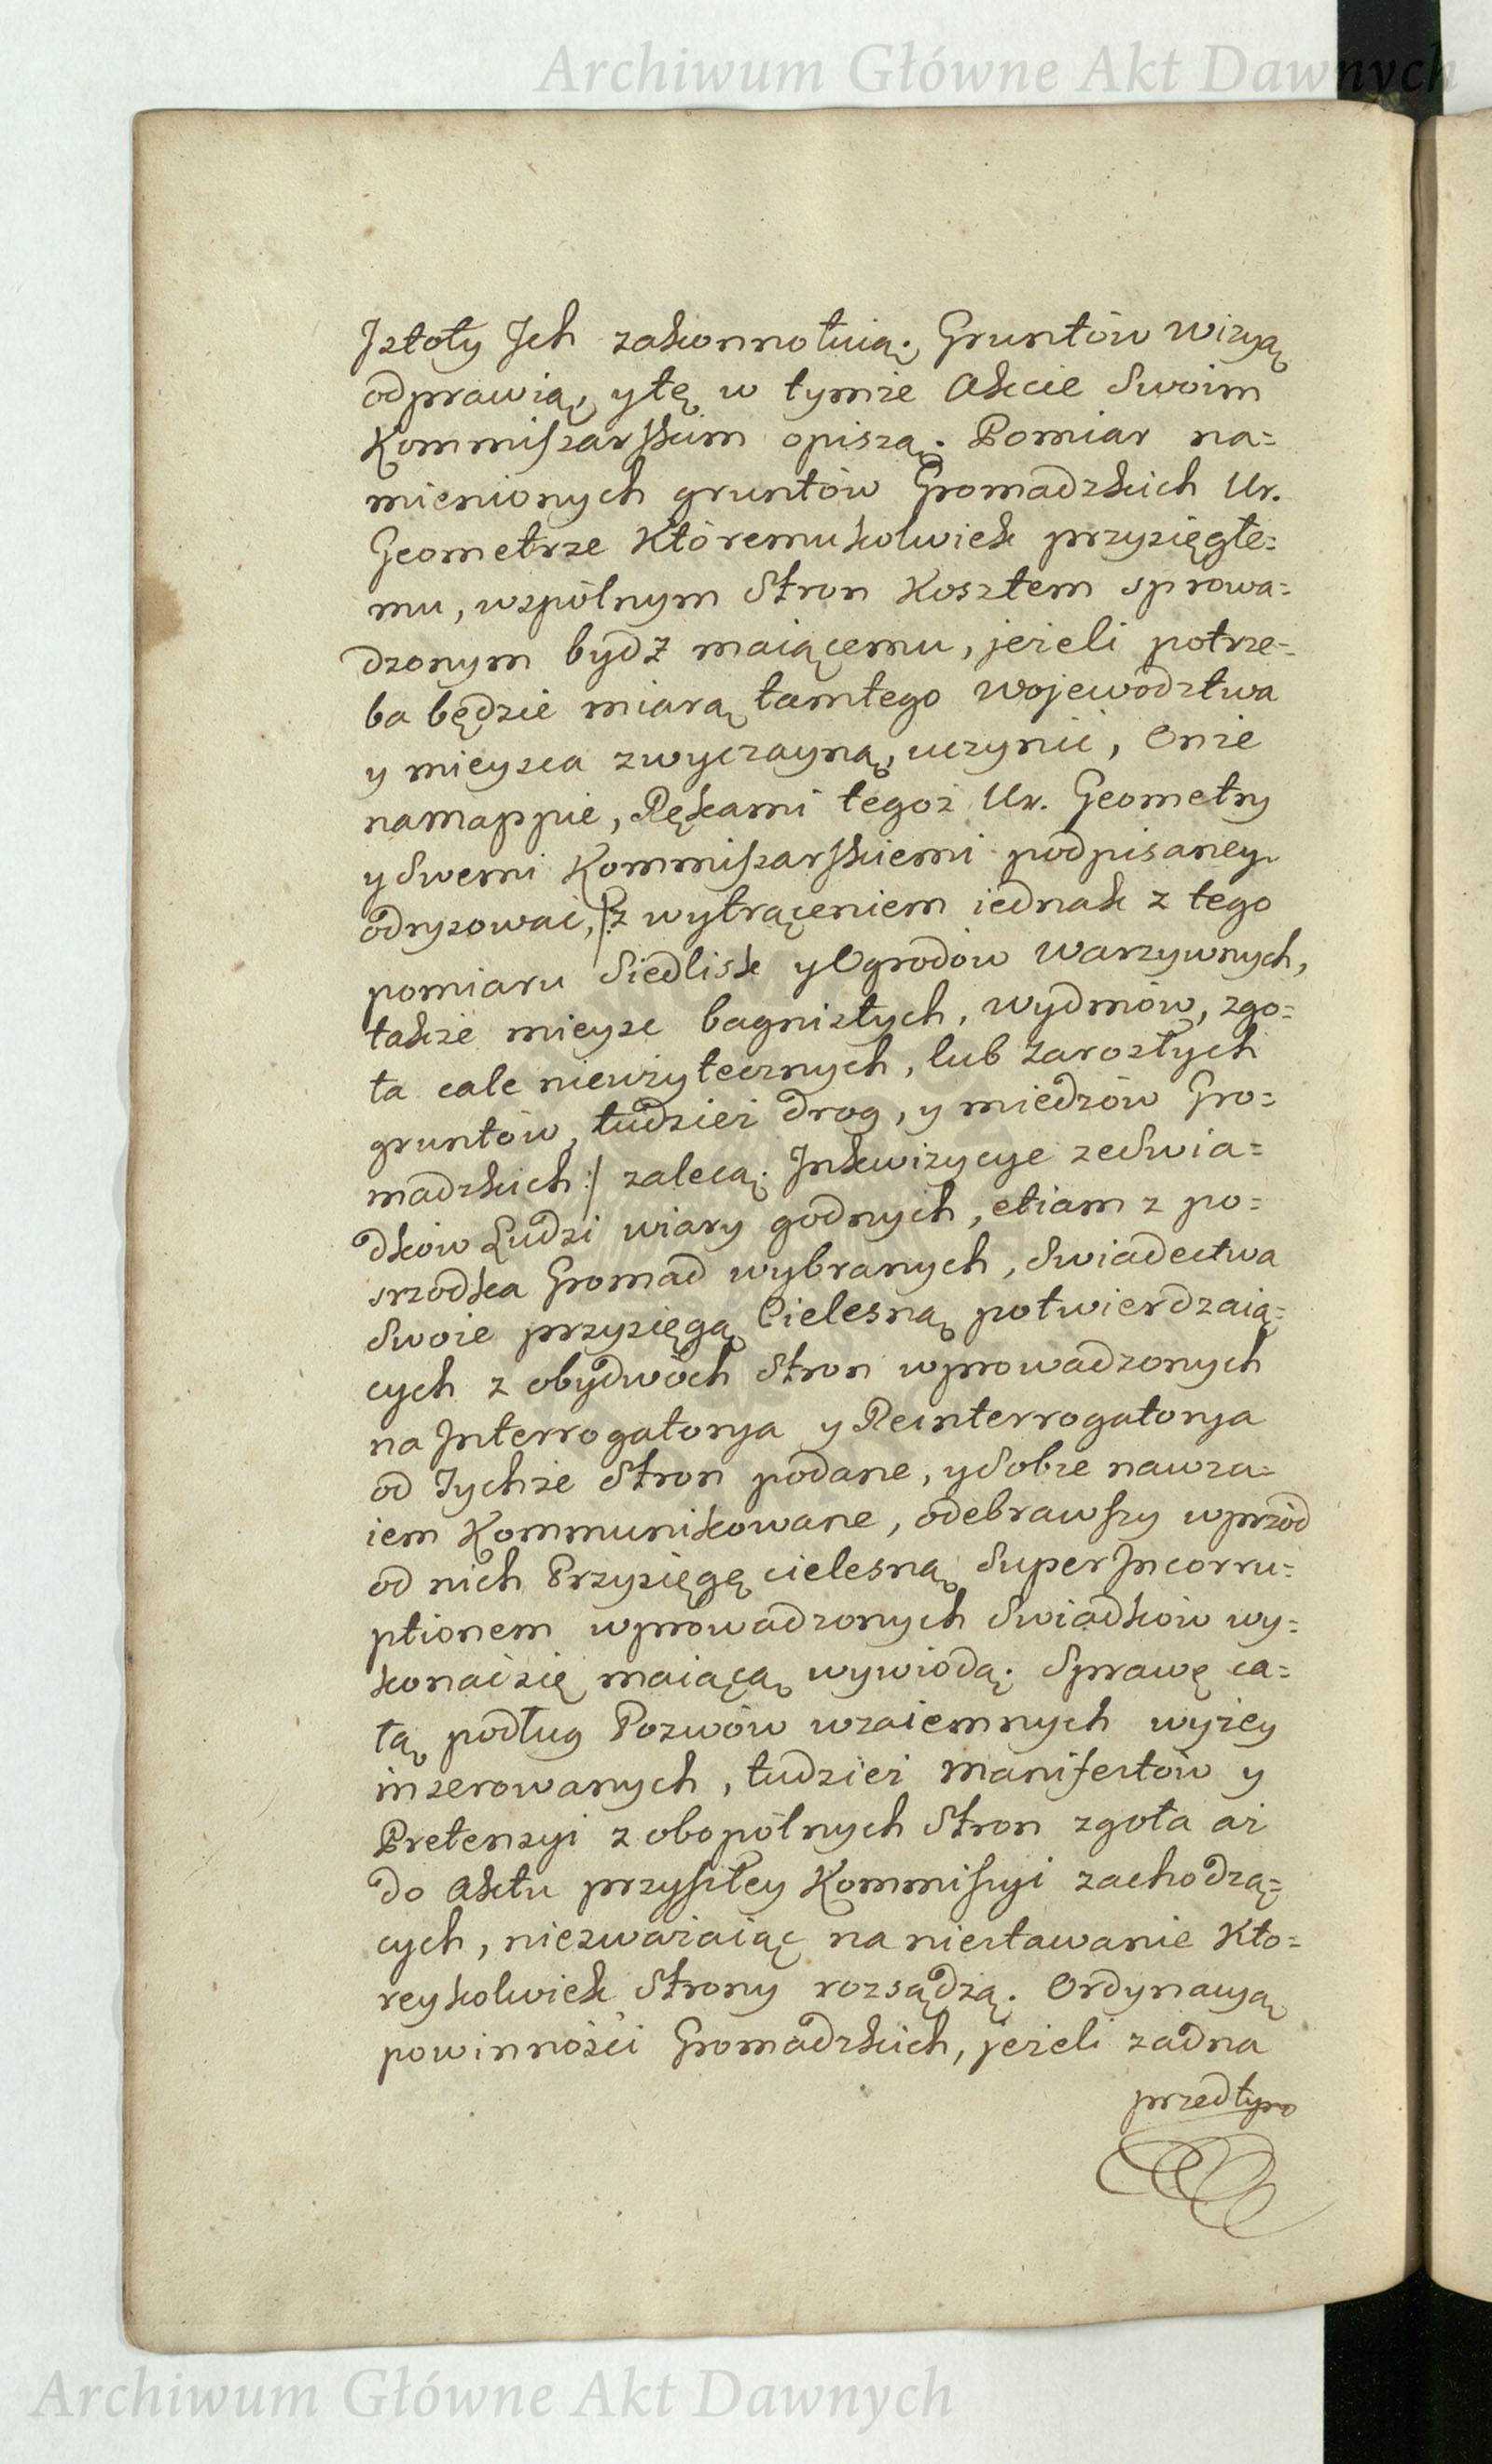 Archiwum Główne Akt Dawnych
Jstoty Jch zakonnotuią. Gruntów wizyą
odprawią, y tę w tymże Akcie Swoim
Kommissarskim opiszą. Pomiar na=
mienionych gruntów Gromadzkich Ur.
Geometrze Któremukolwiek przysięgłe=
mu, wspólnym Stron Kosztem sprowa=
dzonym bydź maiącemu, jeżeli potrze=
ba będzie miarą tamtego Wojewodztwa
y mieysca zwyczayną, uczynić, Onże
na mappie, Rękami tegoż Ur. Geometry
y Swemi Kommissarskiemi podpisaney
odrysować, /: z wytrąceniem iednak z tego
pomiaru Siedlisk y Ogrodów Warzywnych,
także mieysc bagnistych, wydmów, zgo=
ła cale nieużytecznych, lub Zarosłych
gruntów, tudzież drog, y miedzów Gro=
madzkich :/ zalecą. Jnkwizycye ze Swia=
dków Ludzi wiary godnych, etiam z po=
srzodka Gromad wybranych, Swiadectwa
Swoie przysięgą Cielesną potwierdzaią=
cych z obydwóch Stron wprowadzonych
na Jnterrogatorya y Reinterrogatorya
od Tychże Stron podane, y Sobie nawza=
iem Kommunikowane, odebrawszy wprzód
od nich Przysięgę cielesną Super Jncorru=
ptionem wprowadzonych Swiadków wy=
konać się maiącą wywiodą. Sprawę ca=
łą podług Pozwów wzaiemnych wyżey
inserowanych, tudzież Manifestów y
Pretensyi z obopólnych Stron zgoła aż
do Aktu przyszłey Kommissyi zachodzą=
cych, niezważaiąc na niestawanie Kto=
reykolwiek Strony rozsądzą. Ordynacyą
powinności Gromadzkich, jeżeli żadna
przedtym
Archiwum Główne Akt Dawnych